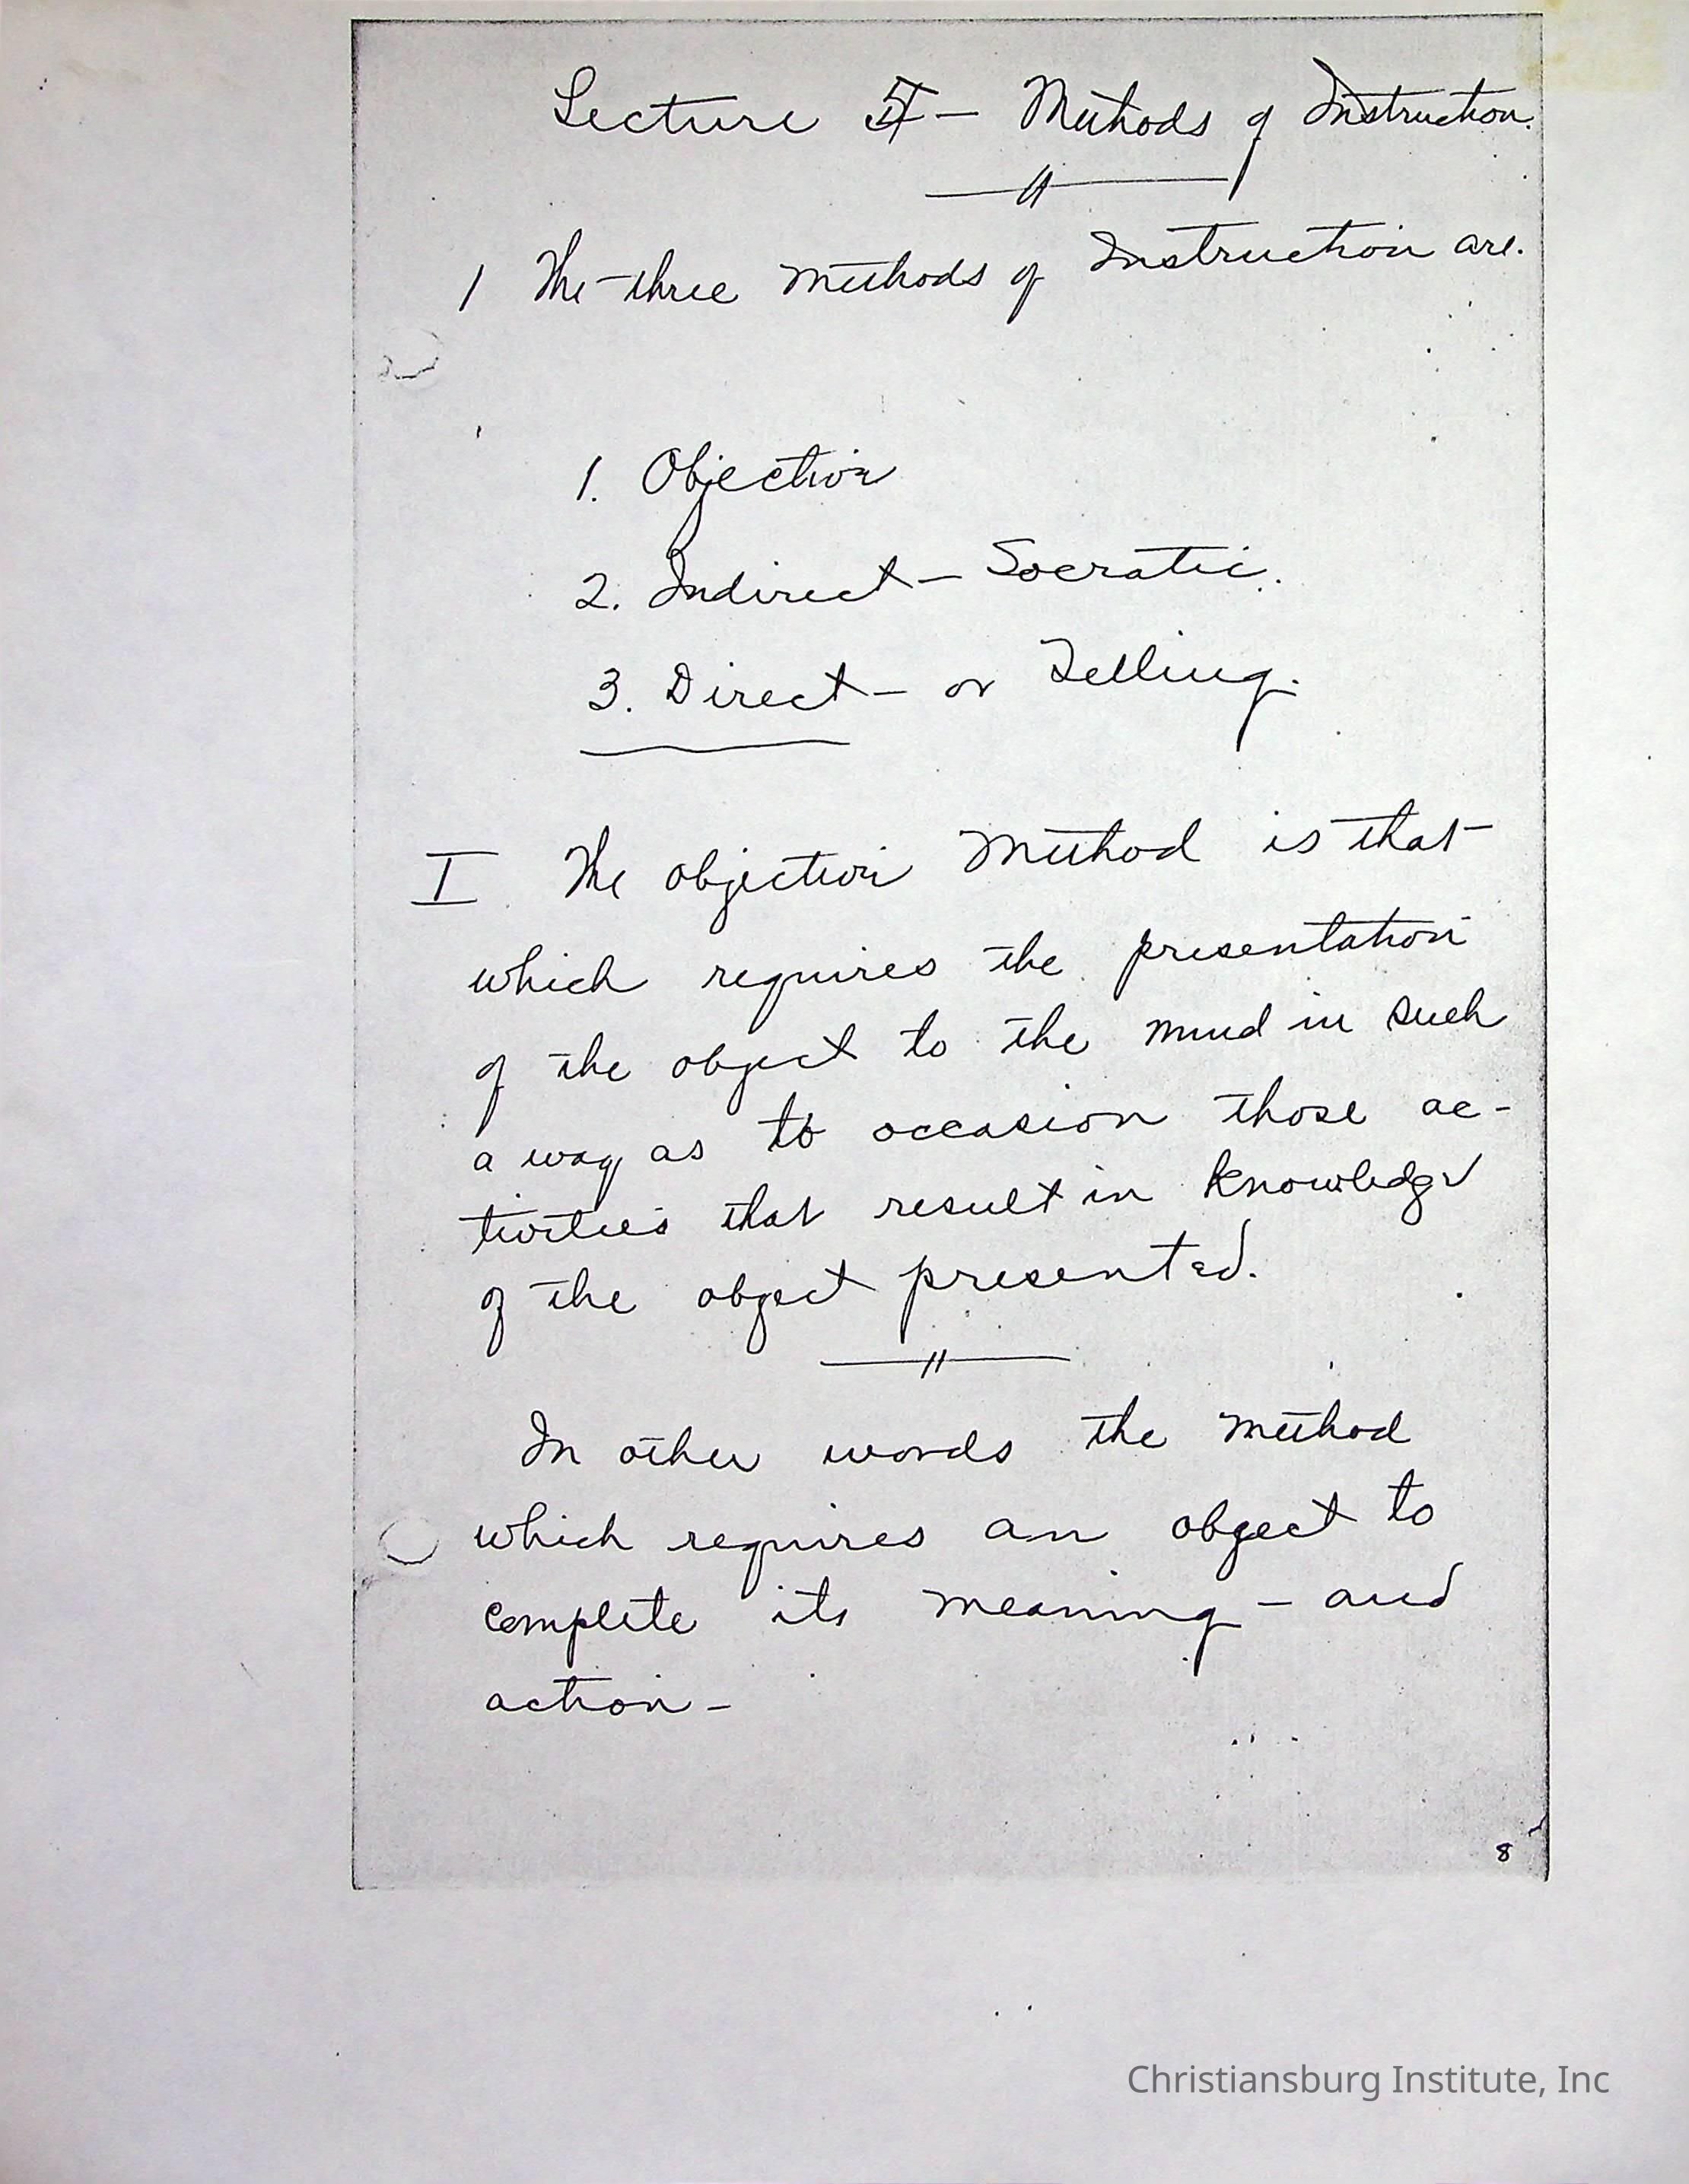 Lecture 5 — Methods of Instruction.
1 The three Methods of Instruction are.
1. Objective
2. Indirect — Socratic.
3. Direct — or Telling.
I The objective Method is that
which requires the presentation
of the object to the mind in such
a way as to occasion those ac-
tivities that result in knowledge
of the object presented.
In other words the method
which requires an object to
complete its meaning — and
action —
8
Christiansburg Institute, Inc